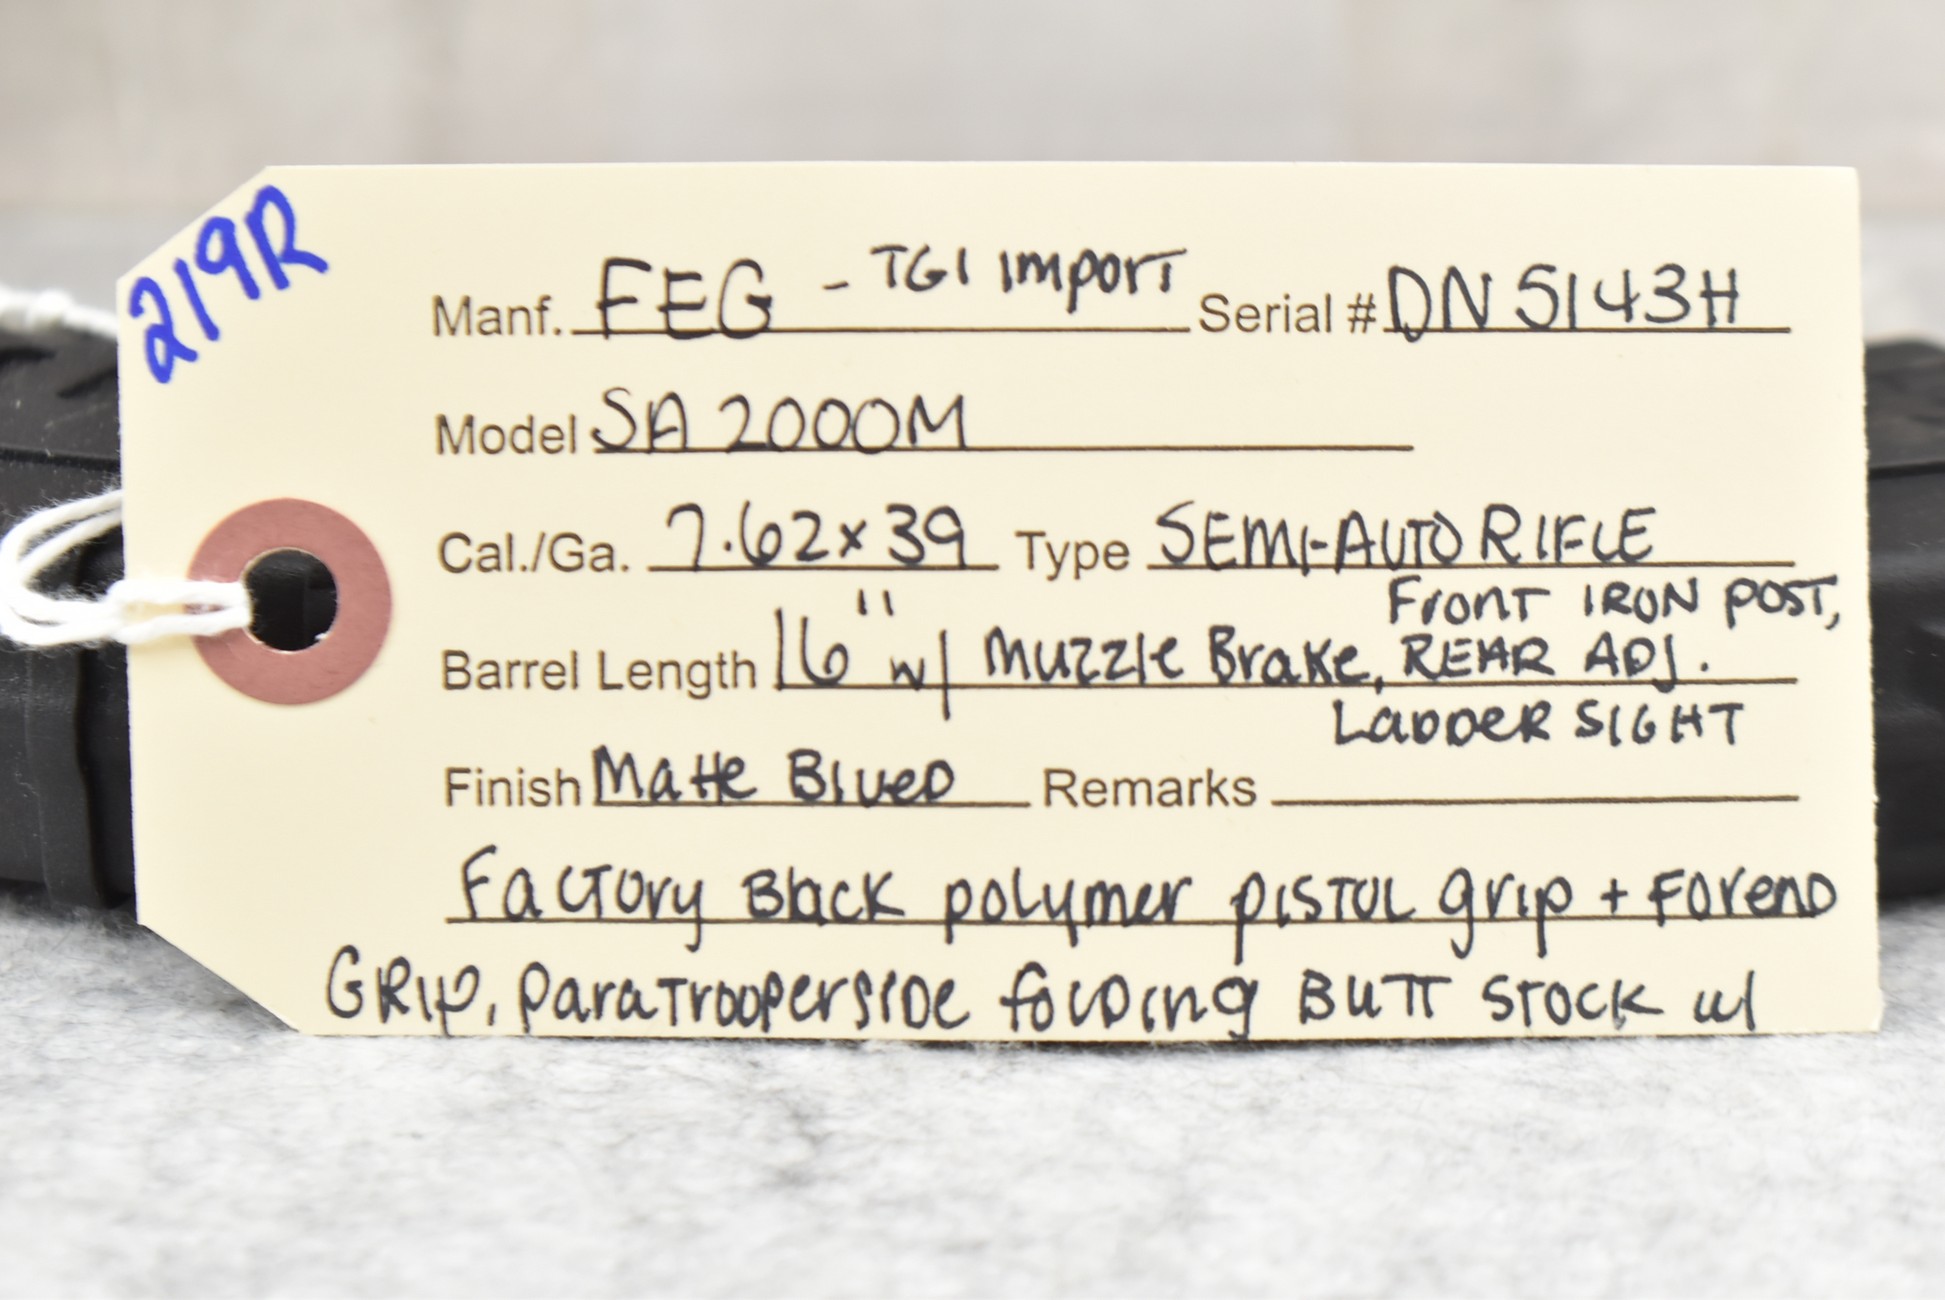 219R
Manf. FEG - TGI Import Serial # DN5143H
Model SA 2000M
Cal./Ga. 7.62x39 Type SEMI-AUTO RIFLE
Front IRON POST,
Barrel Length 16" w/ Muzzle Brake, REAR ADJ.
LADDER SIGHT
Finish Matte Blued Remarks
Factory Black polymer pistol grip + Forend
GRip, paratrooper side folding BUTT STOCK w/